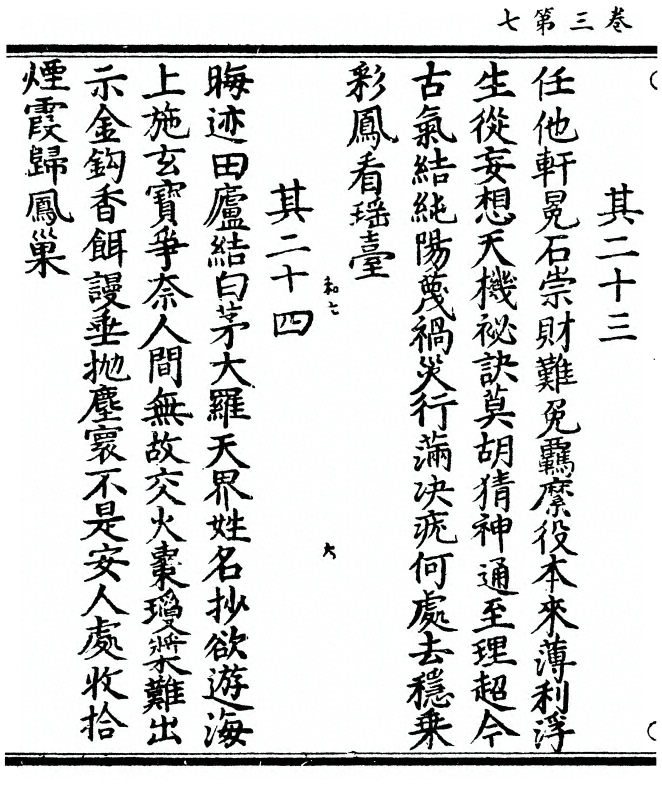 卷三第七
其二十三
任他軒冕石崇財難免羈縻役本來薄利浮
生從妄想天機祕訣莫胡猜神通至理超今
古氣結純陽蔑禍災行滿决疣何處去穩乘
彩鳳看瑶臺
和七
六
其二十四
晦迹田廬結白茅大羅天界姓名抄欲遊海
上施玄寶爭奈人間無故交火棗瓊漿難出
示金鈎香餌謾垂抛塵寰不是安人處收拾
煙霞歸鳳巢